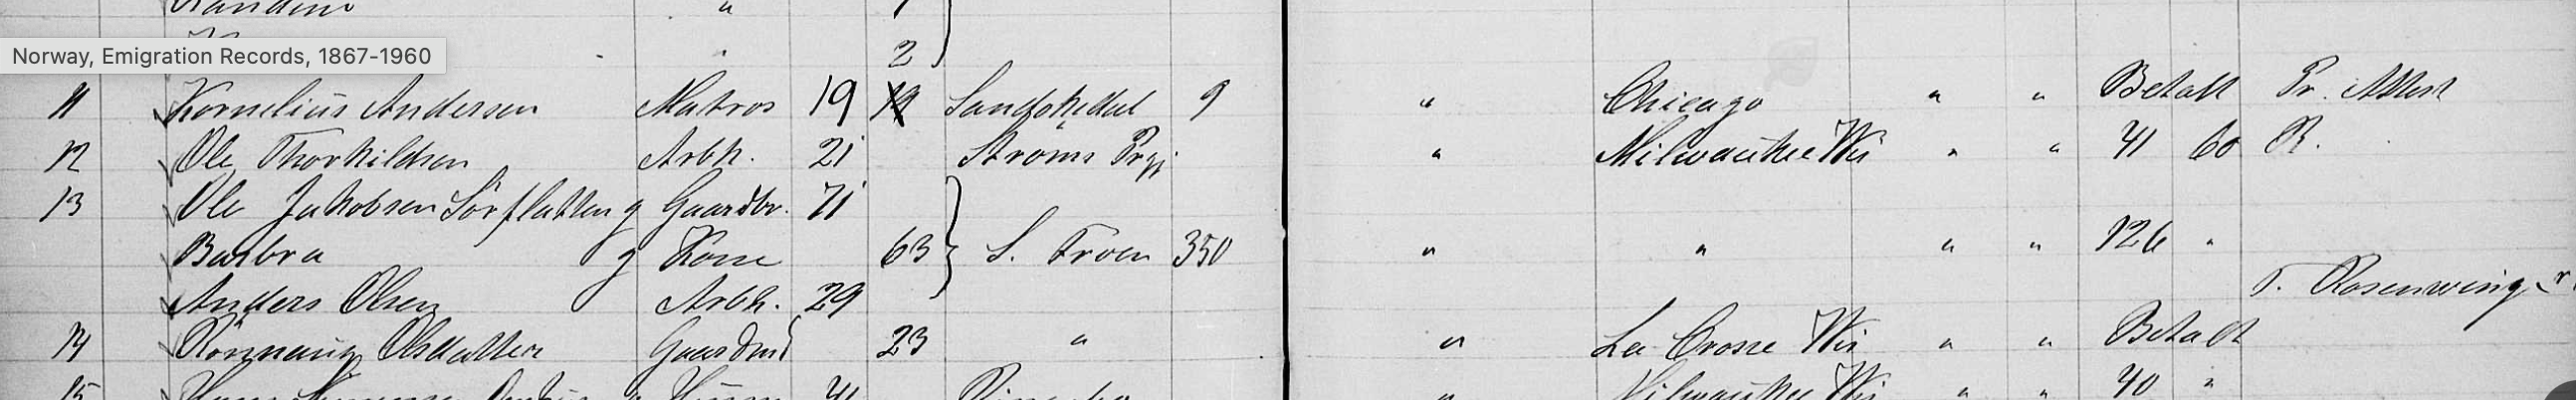 Norway, Emigration Records, 1867-1960
2
11 Kornelius Andersen Matros 19 19 Sandskedal 9 " Chicago " " Betalt Pr. Attest
12 Ole Thorkildsen Arbk. 21 Ströms Prgj. " Milwaukee Wis " " 41 60 R.
13 Ole Jakobsen Sörflatten g Gaardbr. 71
Barbra g Kone 63 } S. Froen 350 " " " " 126 "
Anders Olsen Arbk. 29 T. Rosenwinge
14 Rönnaug Olsdatter 23 " " La Crosse Wis " " Betalt
15 41 " Milwaukee Wis " " 40 "